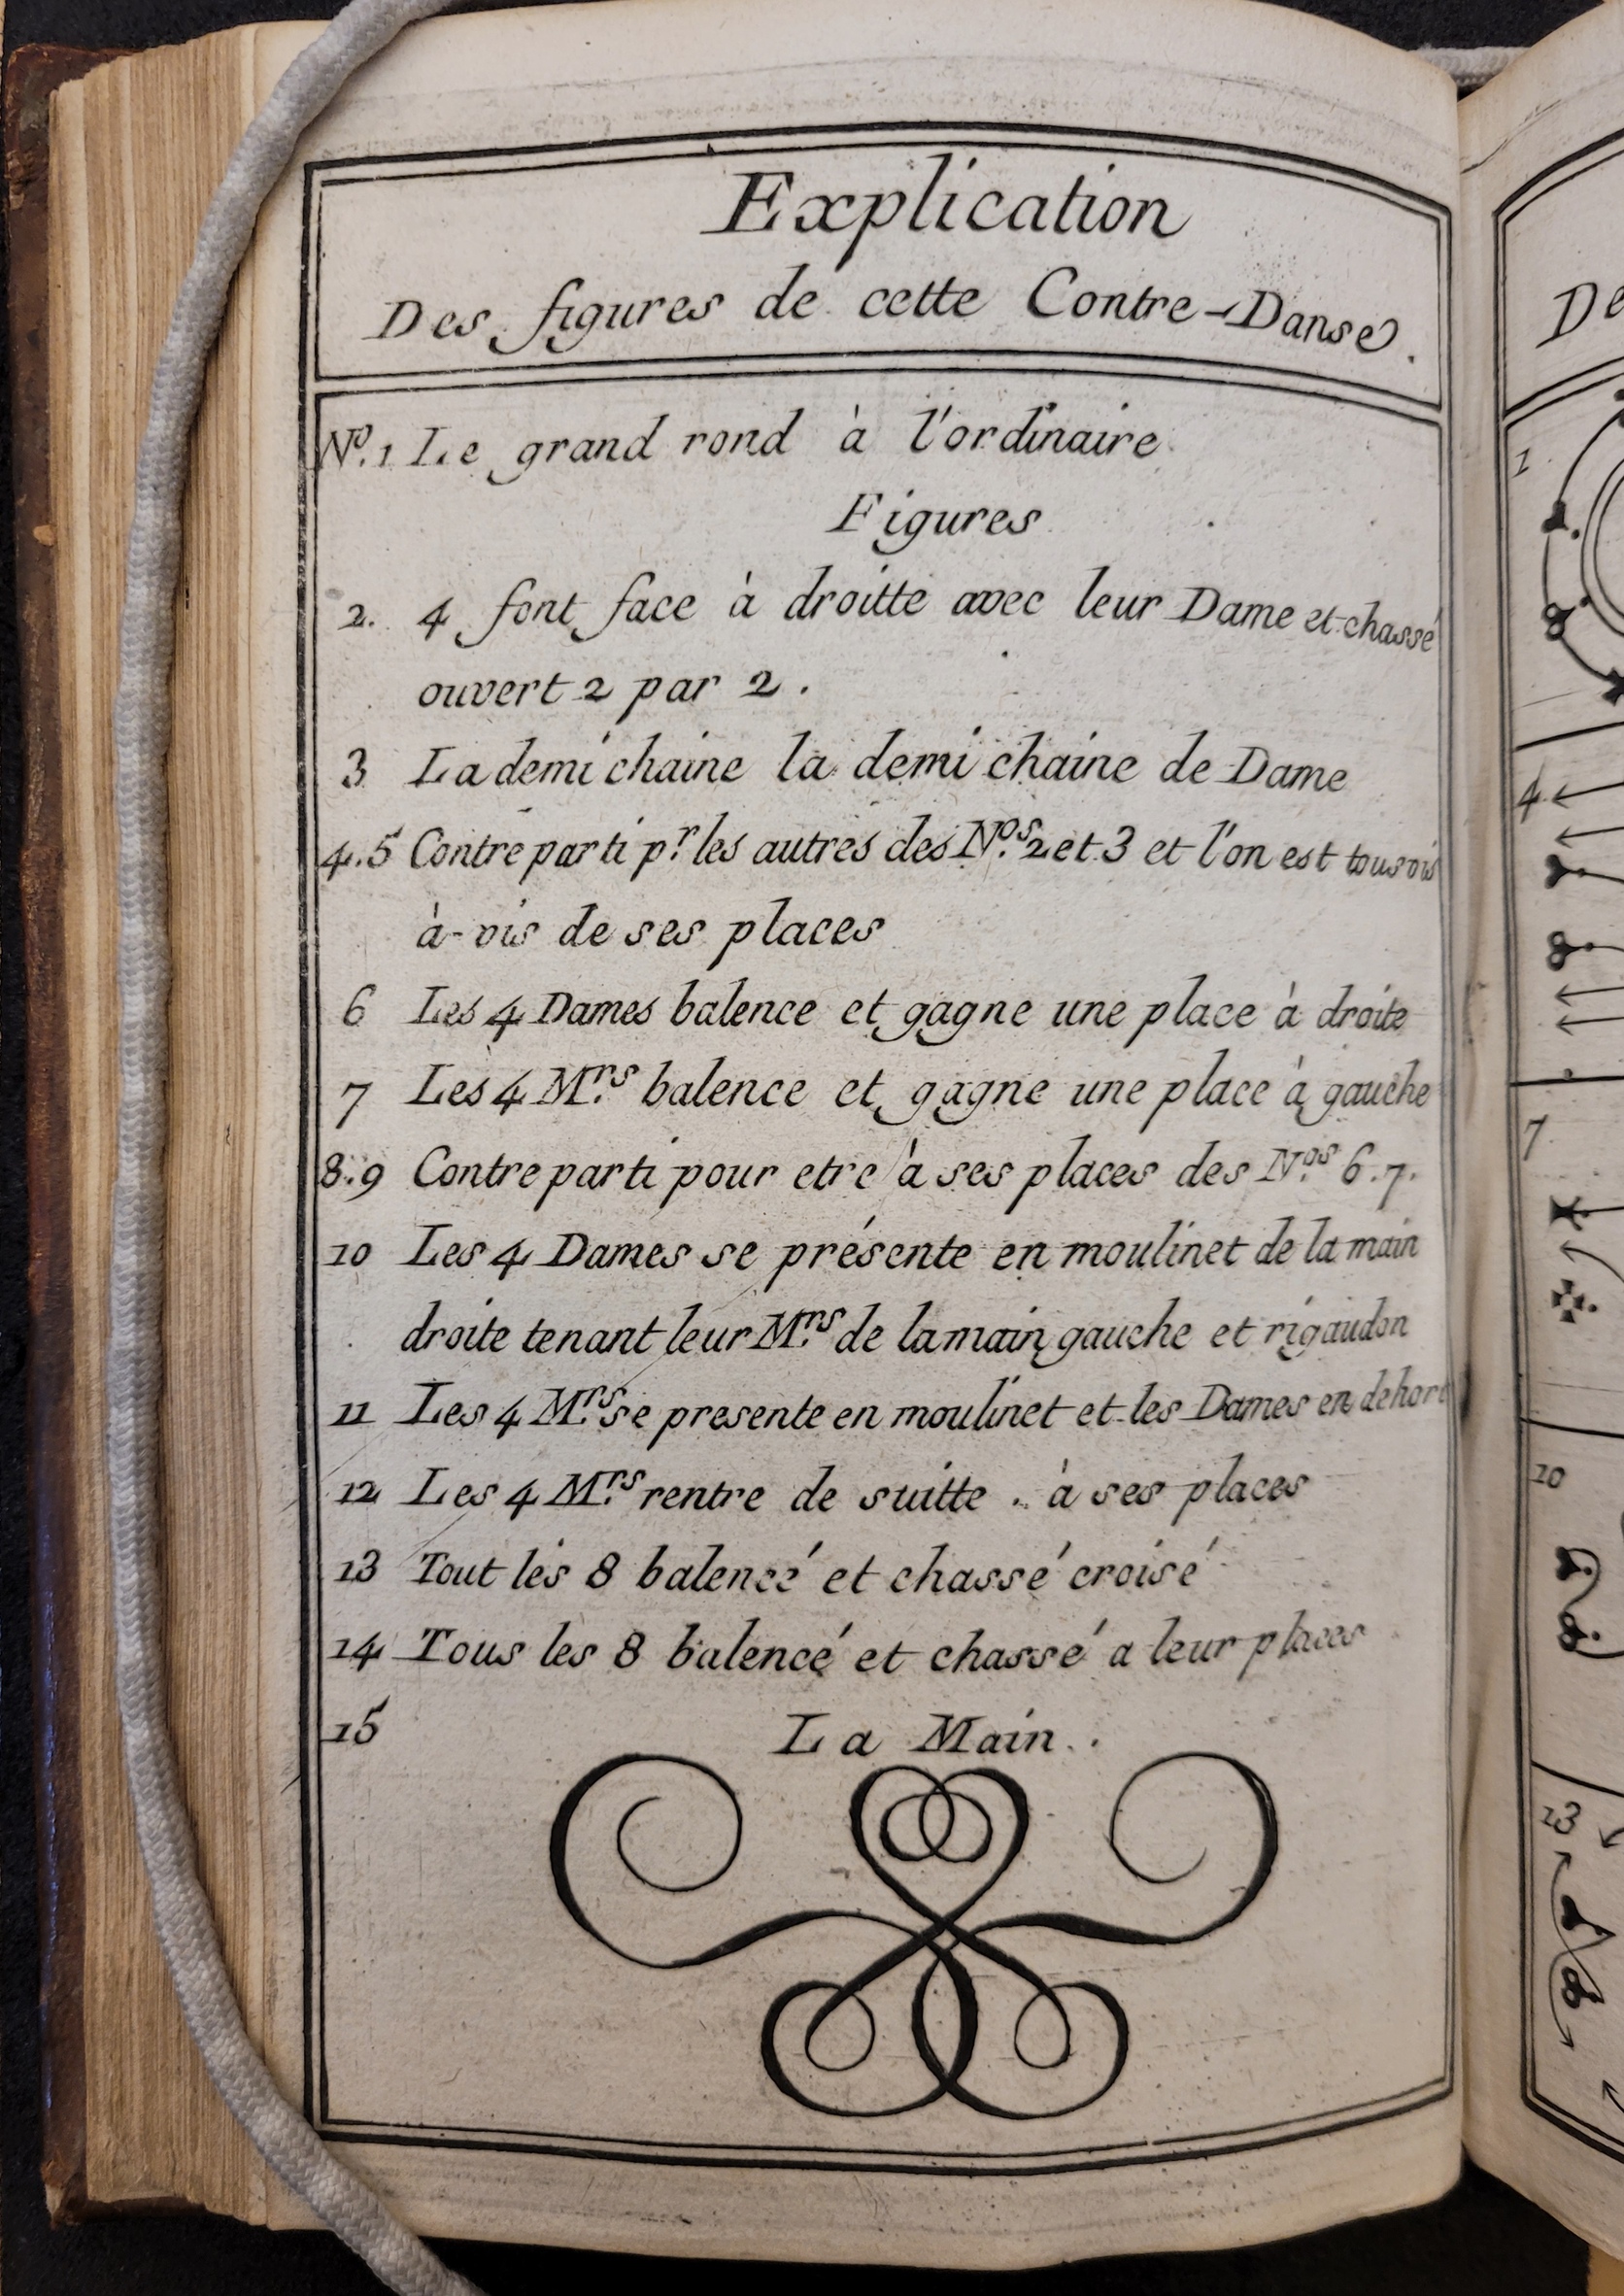 Explication
Des figures de cette Contre-Danse.
No. 1 Le grand rond à l'ordinaire
Figures
2. 4 font face à droitte avec leur Dame et chassé
ouvert 2 par 2.
3 La demi chaine la demi chaine de Dame
4.5 Contre parti pr. les autres des Nos. 2 et 3 et l'on est tous vis
à-vis de ses places
6 Les 4 Dames balence et gagne une place à droite
7 Les 4 Mrs. balence et gagne une place à gauche
8.9 Contre parti pour etre à ses places des Nos. 6.7.
10 Les 4 Dames se présente en moulinet de la main
droite tenant leur Mrs. de la main gauche et rigaudon
11 Les 4 Mrs. se presente en moulinet et les Dames en dehors
12 Les 4 Mrs. rentre de suitte . à ses places
13 Tout les 8 balencé et chassé croisé
14 Tous les 8 balencé et chassé a leur places
15 La Main.
De
1
4
7
10
13